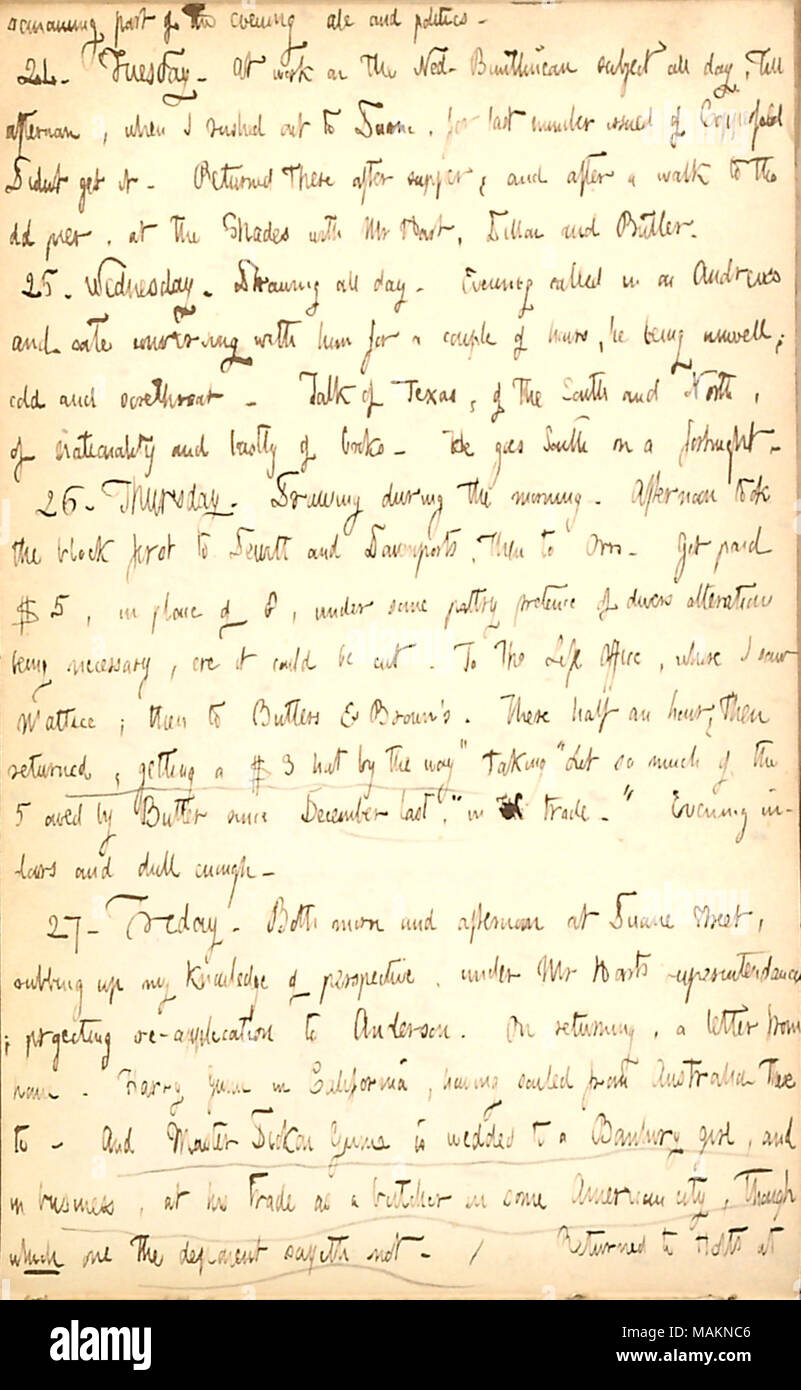 remaining part of the evening ale and politics -
24. Tuesday. At work on the Ned Buntlinean subject all day, till
afternoon, when I rushed out to Duane, for last number issued of Copperfield
Didnt get it. Returned there after supper; and after a walk to the
old pier, at the Shades with Mr Hart, Dillon and Butler.
25. Wednesday. Drawing all day. Evening called in on Andrews
and sate conversing with him for a couple of hours, he being unwell;
cold and sorethroat. Talk of Texas, of the South and North,
of nationality and lastly of books. He goes South in a fortnight.
26. Thursday. Drawing during the morning. Afternoon took
the block first to Dewitt and Davenports, then to Orrs. Got paid
$5, in place of 8, under some paltry pretence of divers alterations
being necessary, ere it could be cut. To the Life Office, where I saw
Wallace; then to Butlers & Brown's. There half an hour, then
returned, getting a $3 hat by the way "taking" out so much of the
5 owed by Butler since December last, "in trade." Evening in-
doors and dull enough.
27. Friday. Both morn and afternoon at Duane Street,
rubbing up my knowledge of perspective, under Mr Harts superintendance
; projecting re-application to Anderson. On returning, a letter from
home. Harry Gunn in California, having sailed from Australia there
to. And Master Dickon Gunn is wedded to a Banbury girl, and
in business, at his trade as a butcher in some American city, though
which one the deponent sayeth not. / Returned to Holts at
alamy
Image ID: MAKNC6
www.alamy.com